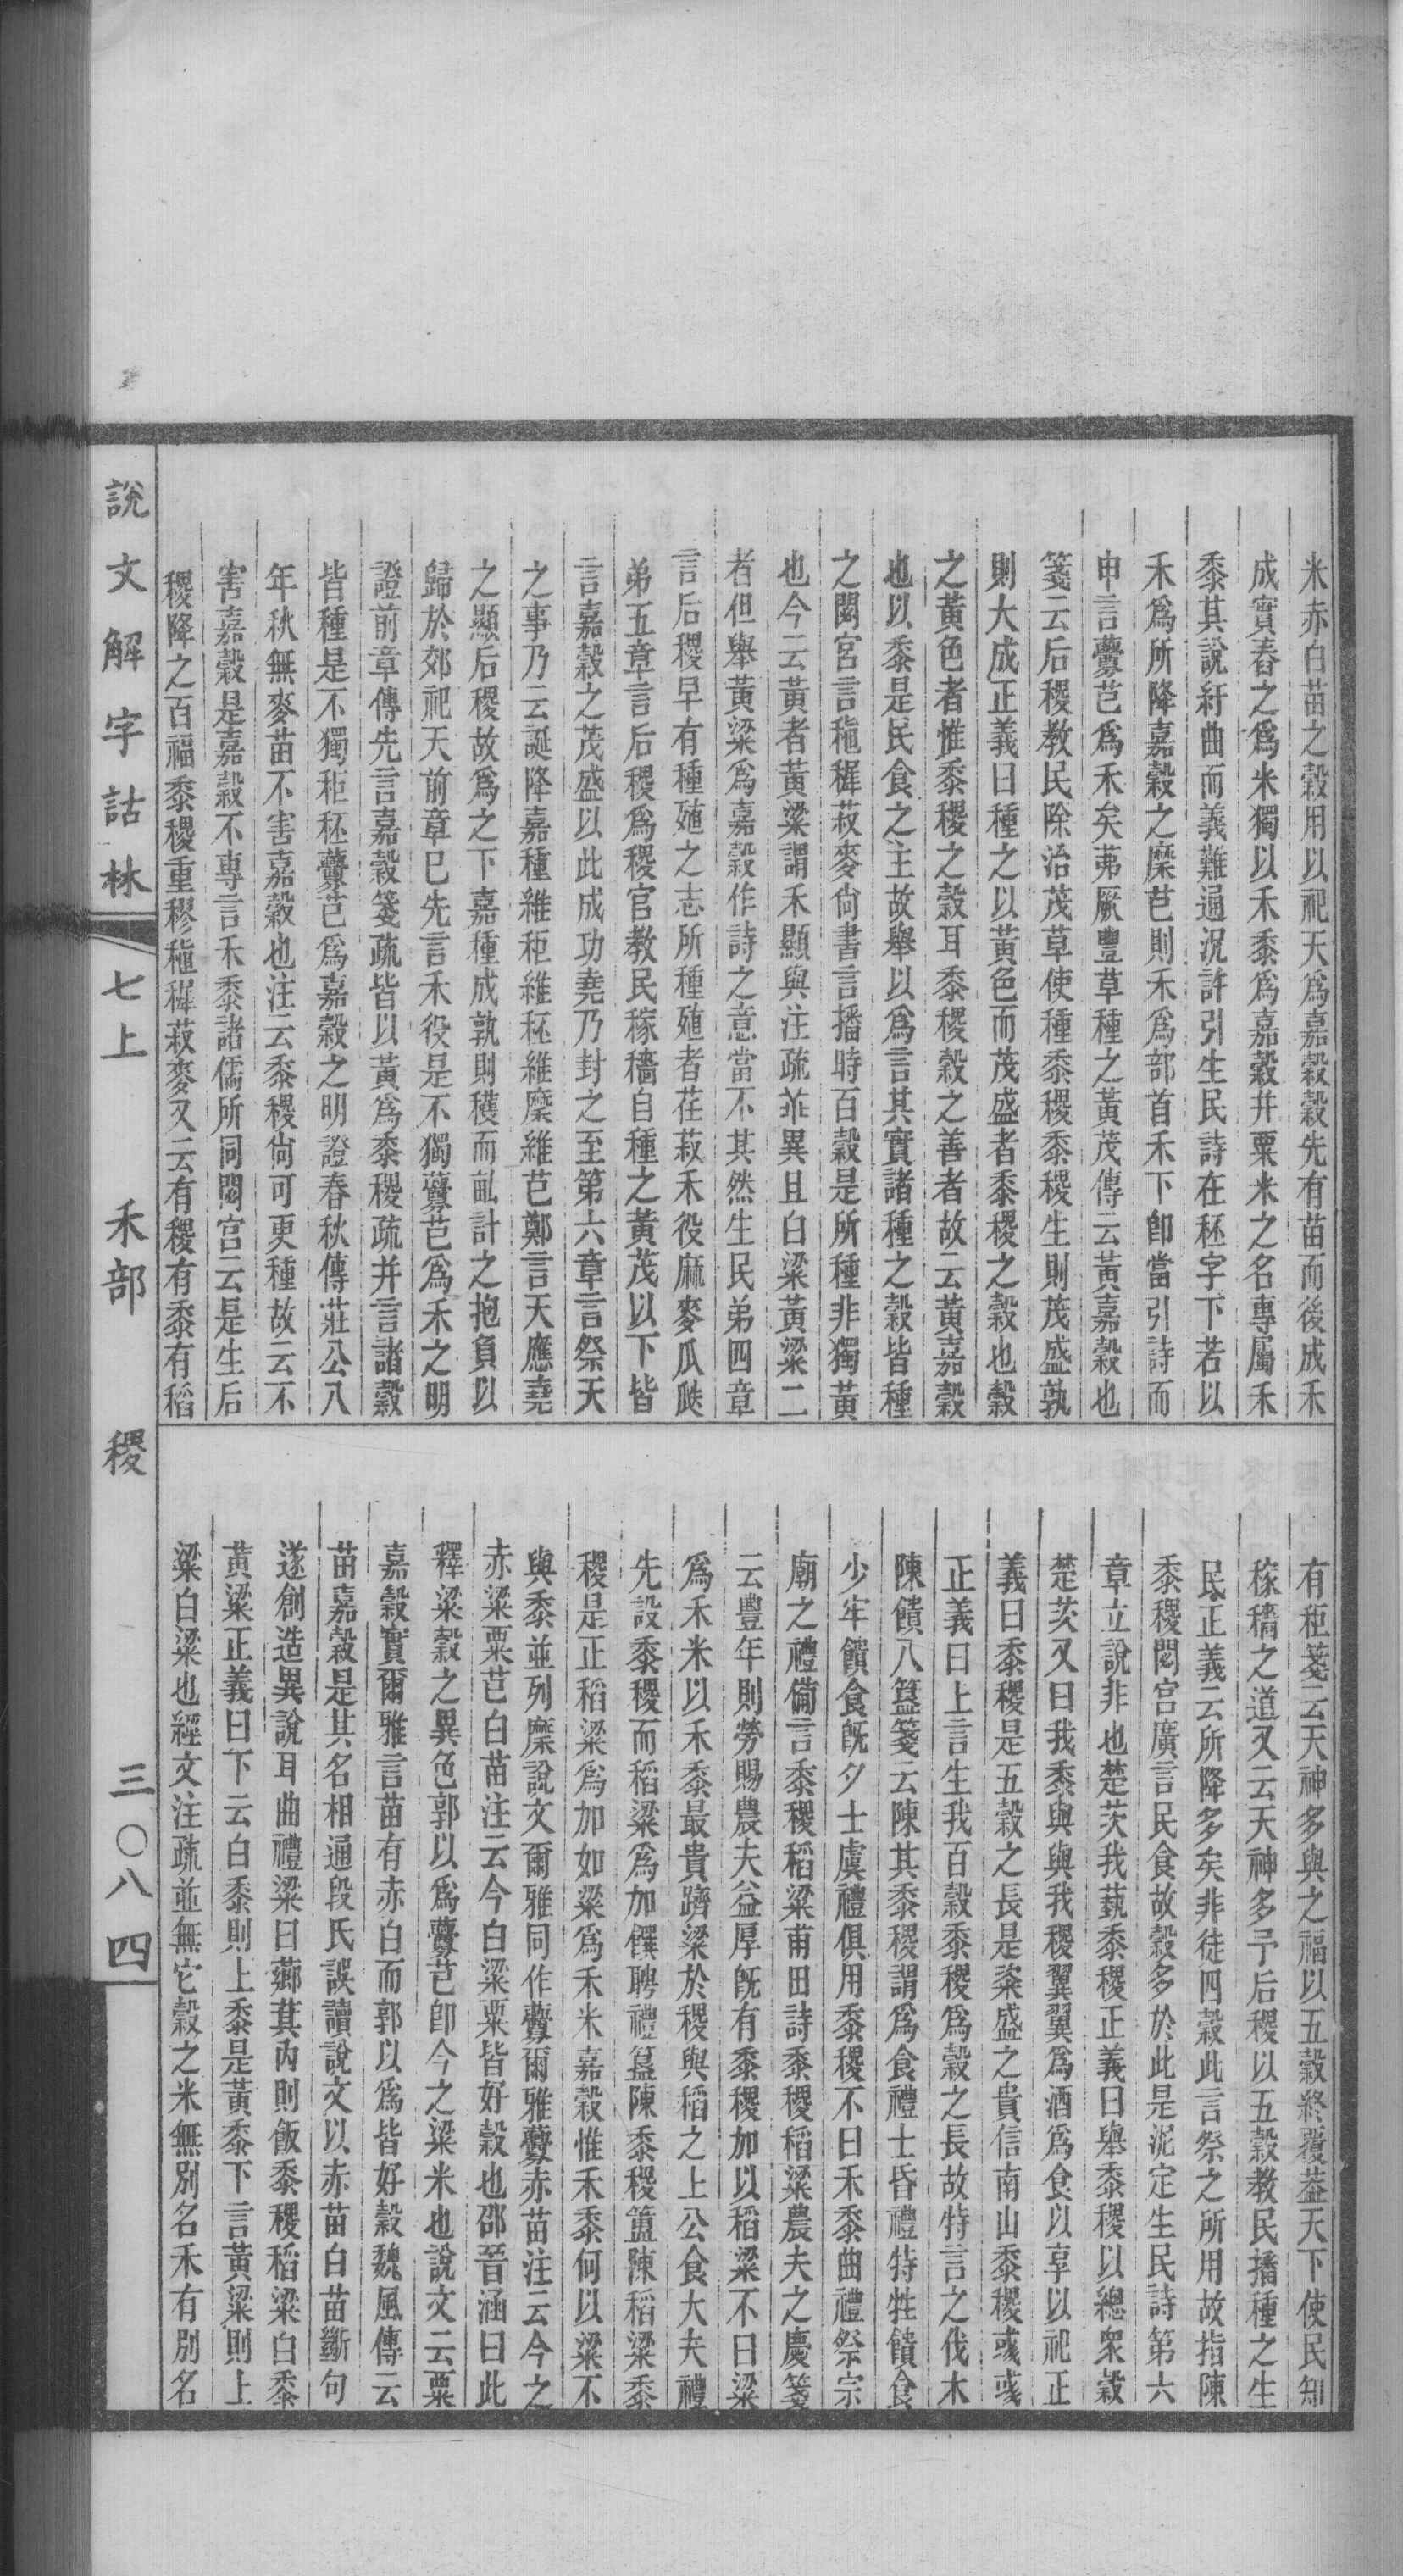 米赤白苗之穀用以祀天爲嘉穀穀先有苗而後成禾
成實舂之爲米獨以禾黍爲嘉穀并粟米之名專屬禾
黍其說紆曲而義難通況許引生民詩在秠字下若以
禾爲所降嘉穀之穈芑則禾爲部首禾下卽當引詩而
申言虋芑爲禾矣茀厥豐草種之黃茂傳云黃嘉穀也
箋云后稷教民除治茂草使種黍稷黍稷生則茂盛孰
則大成正義曰種之以黃色而茂盛者黍稷之穀也穀
之黃色者惟黍稷之穀耳黍稷穀之善者故云黃嘉穀
也以黍是民食之主故舉以爲言其實諸種之穀皆種
之閟宮言稙穉菽麥尙書言播時百穀是所種非獨黃
也今云黃者黃粱謂禾顯與注疏竝異且白粱黃粱二
者但舉黃粱爲嘉穀作詩之意當不其然生民弟四章
言后稷早有種殖之志所種殖者荏菽禾役麻麥瓜瓞
弟五章言后稷爲稷官教民稼穡自種之黃茂以下皆
言嘉穀之茂盛以此成功堯乃封之至第六章言祭天
之事乃云誕降嘉種維秬維秠維穈維芑鄭言天應堯
之顯后稷故爲之下嘉種成孰則穫而畝計之抱負以
歸於郊祀天前章已先言禾役是不獨虋芑爲禾之明
證前章傳先言嘉穀箋疏皆以黃爲黍稷疏并言諸穀
皆種是不獨秬秠虋芑爲嘉穀之明證春秋傳莊公八
年秋無麥苗不害嘉穀也注云黍稷尙可更種故云不
害嘉穀是嘉穀不專言禾黍諸儒所同閟宮云是生后
稷降之百福黍稷重穋稙穉菽麥又云有稷有黍有稻
有秬箋云天神多與之福以五穀終覆葢天下使民知
稼穡之道又云天神多予后稷以五穀教民播種之生
民正義云所降多矣非徒四穀此言祭之所用故指陳
黍稷閟宮廣言民食故穀多於此是泥定生民詩第六
章立說非也楚茨我蓺黍稷正義曰舉黍稷以總衆穀
楚茨又曰我黍與與我稷翼翼爲酒爲食以享以祀正
義曰黍稷是五穀之長是粢盛之貴信南山黍稷彧彧
正義曰上言生我百穀黍稷爲穀之長故特言之伐木
陳饋八簋箋云陳其黍稷謂爲食禮士昏禮特牲饋食
少牢饋食旣夕士虞禮俱用黍稷不曰禾黍曲禮祭宗
廟之禮備言黍稷稻粱甫田詩黍稷稻粱農夫之慶箋
云豐年則勞賜農夫益厚旣有黍稷加以稻粱不曰粱
爲禾米以禾黍最貴躋粱於稷與稻之上公食大夫禮
先設黍稷而稻粱爲加饌聘禮簋陳黍稷簠陳稻粱黍
稷是正稻粱爲加如粱爲禾米嘉穀惟禾黍何以粱不
與黍並列穈說文爾雅同作虋爾雅虋赤苗注云今之
赤粱粟芑白苗注云今白粱粟皆好穀也邵晉涵曰此
釋粱穀之異色郭以爲虋芑卽今之粱米也說文云粟
嘉穀實爾雅言苗有赤白而郭以爲皆好穀魏風傳云
苗嘉穀是其名相通段氏誤讀說文以赤苗白苗斷句
遂創造異說耳曲禮粱曰薌萁內則飯黍稷稻粱白黍
黃粱正義曰下云白黍則上黍是黃黍下言黃粱則上
粱白粱也經文注疏並無它穀之米無別名禾有別名
說文解字詁林 七上 禾部 稷 三〇八四